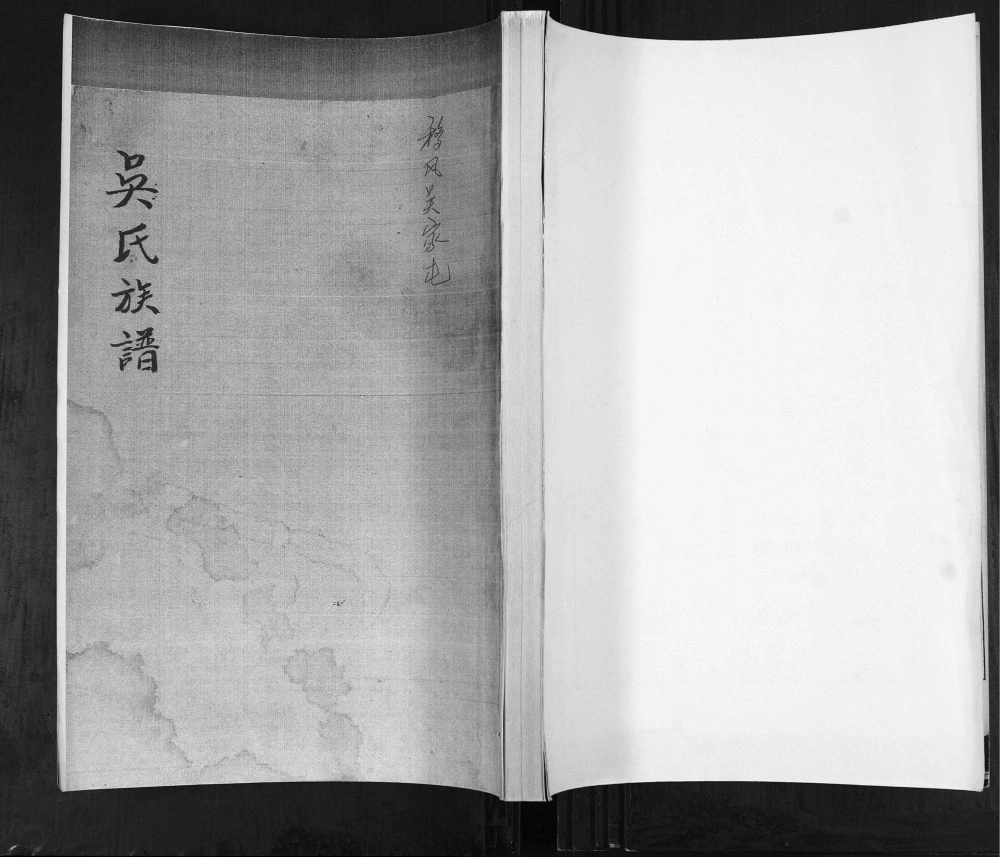 移风吴家屯
吳氏族譜